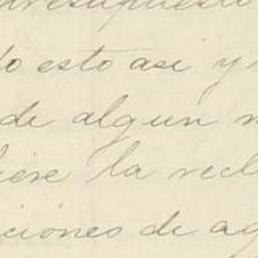 presupuesto
do esto asi y
de algun
iere la recl
ciones de ag